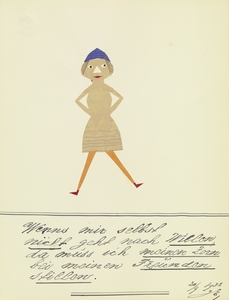 Wenns mir selbst
nicht geht nach Willen
da muss ich meinen Zorn
bei meinen Freunden
stillen.